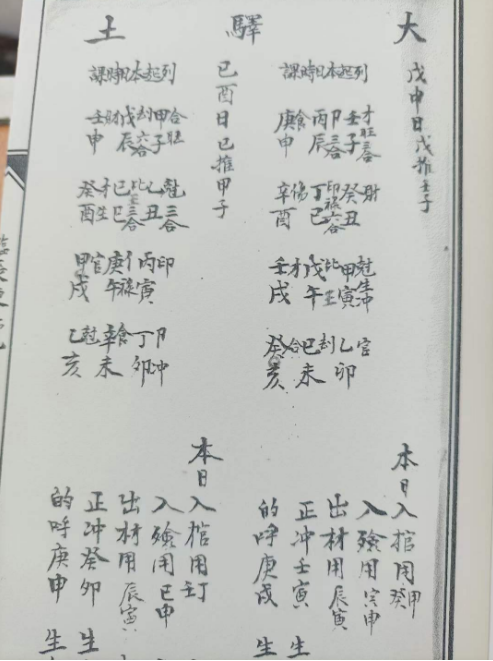 大驛土
戊申日戊推壬子
列起本日時課
壬子才旺三合 丙辰卩三合 庚申食
癸丑財 丁巳印祿六合 辛酉傷
甲寅尅生冲 戊午比旺 壬戌才
乙卯官 己未刦 癸亥合
本日入棺用甲癸
入殮用申
出材用辰寅
正冲壬寅生
的呼庚戌生
己酉日己推甲子
列起本日時課
甲子合旺 戊辰刦六合 壬申財
乙丑尅三合 己巳比三合 癸酉才生
丙寅印 庚午祿 甲戌官
丁卯卩冲 辛未食 乙亥尅
本日入棺用壬丁
入殮用巳申
出材用辰寅
正冲癸卯生
的呼庚申生